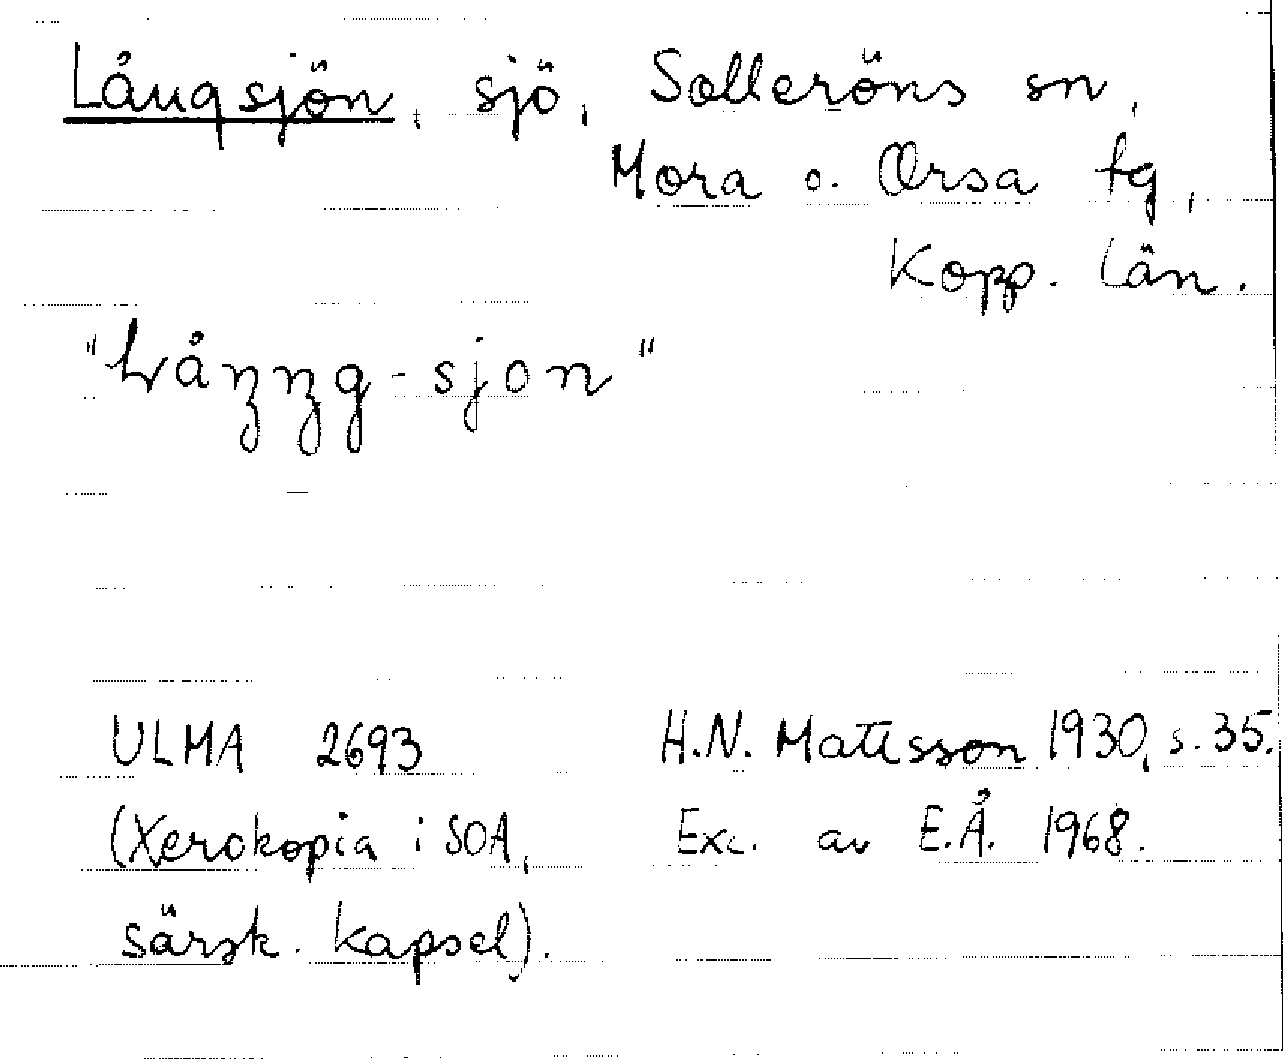 Långsjön, sjö, Solleröns sn,
Mora o. Orsa tg,
Kopp. län.
-sjon"
ULMA 2693 H.N. Matsson 1930, s. 35.
(Xerokopia i SOA, Exc. av E.Å. 1968.
särsk. kapsel).